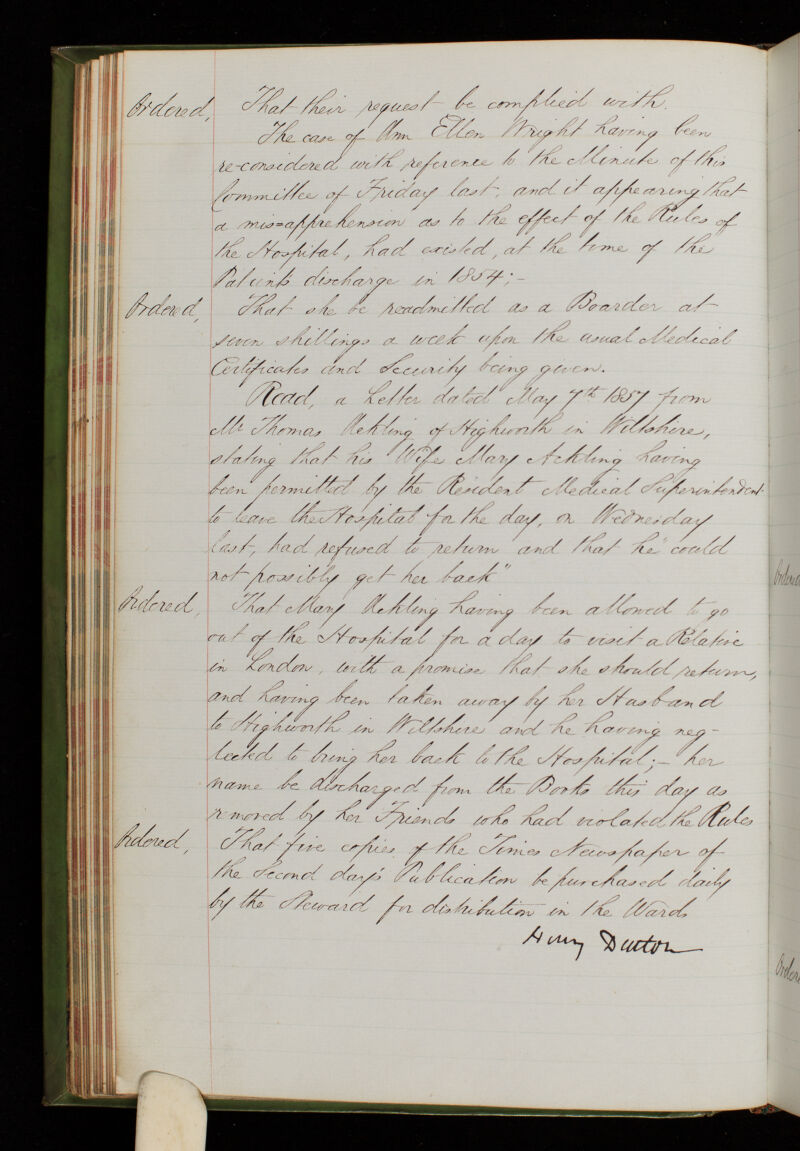 Ordered, That their request be complied with.
The case of Ann Ellen Wright having been
re-considered with reference to the Minute of this
Committee of Friday last, and it appearing that
a mis=apprehension as to the effect of the Rules of
the Hospital, had existed, at the time of the
Patients discharge in 1854;-
Ordered, That she be readmitted as a Boarder at
seven shillings a week upon the usual Medical
Certificates and Security being given.
Read, a Letter dated May 7th 1857 from
Mr Thomas Ackling of Highworth in Wiltshire,
stating that his Wife Mary Ackling having
been permitted by the Resident Medical Superintendent
to leave the Hospital for the day, on Wednesday
last, had refused to return and that he "could
not possibly get her back"
Ordered, That Mary Ackling having been allowed to go
out of the Hospital for a day to visit a Relative
in London, with a promise that she should return,
and having been taken away by her Husband
to Highworth in Wiltshire and he having neg-
lected to bring her back to the Hospital;- her
name be discharged from the Books this day as
removed by her Friends who had violated the Rules
Ordered, That five copies of the Times Newspaper of
the Second day's Publication be purchased daily
by the Steward for distribution in the Wards
Henry Dutton